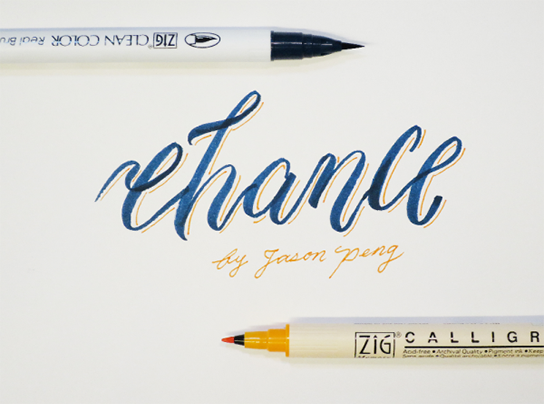 ZIG® CLEAN COLOR Real Bru
chance
by Jason Peng
ZIG® CALLIGR
Acid-free • Archival Quality • Pigment ink • Keep